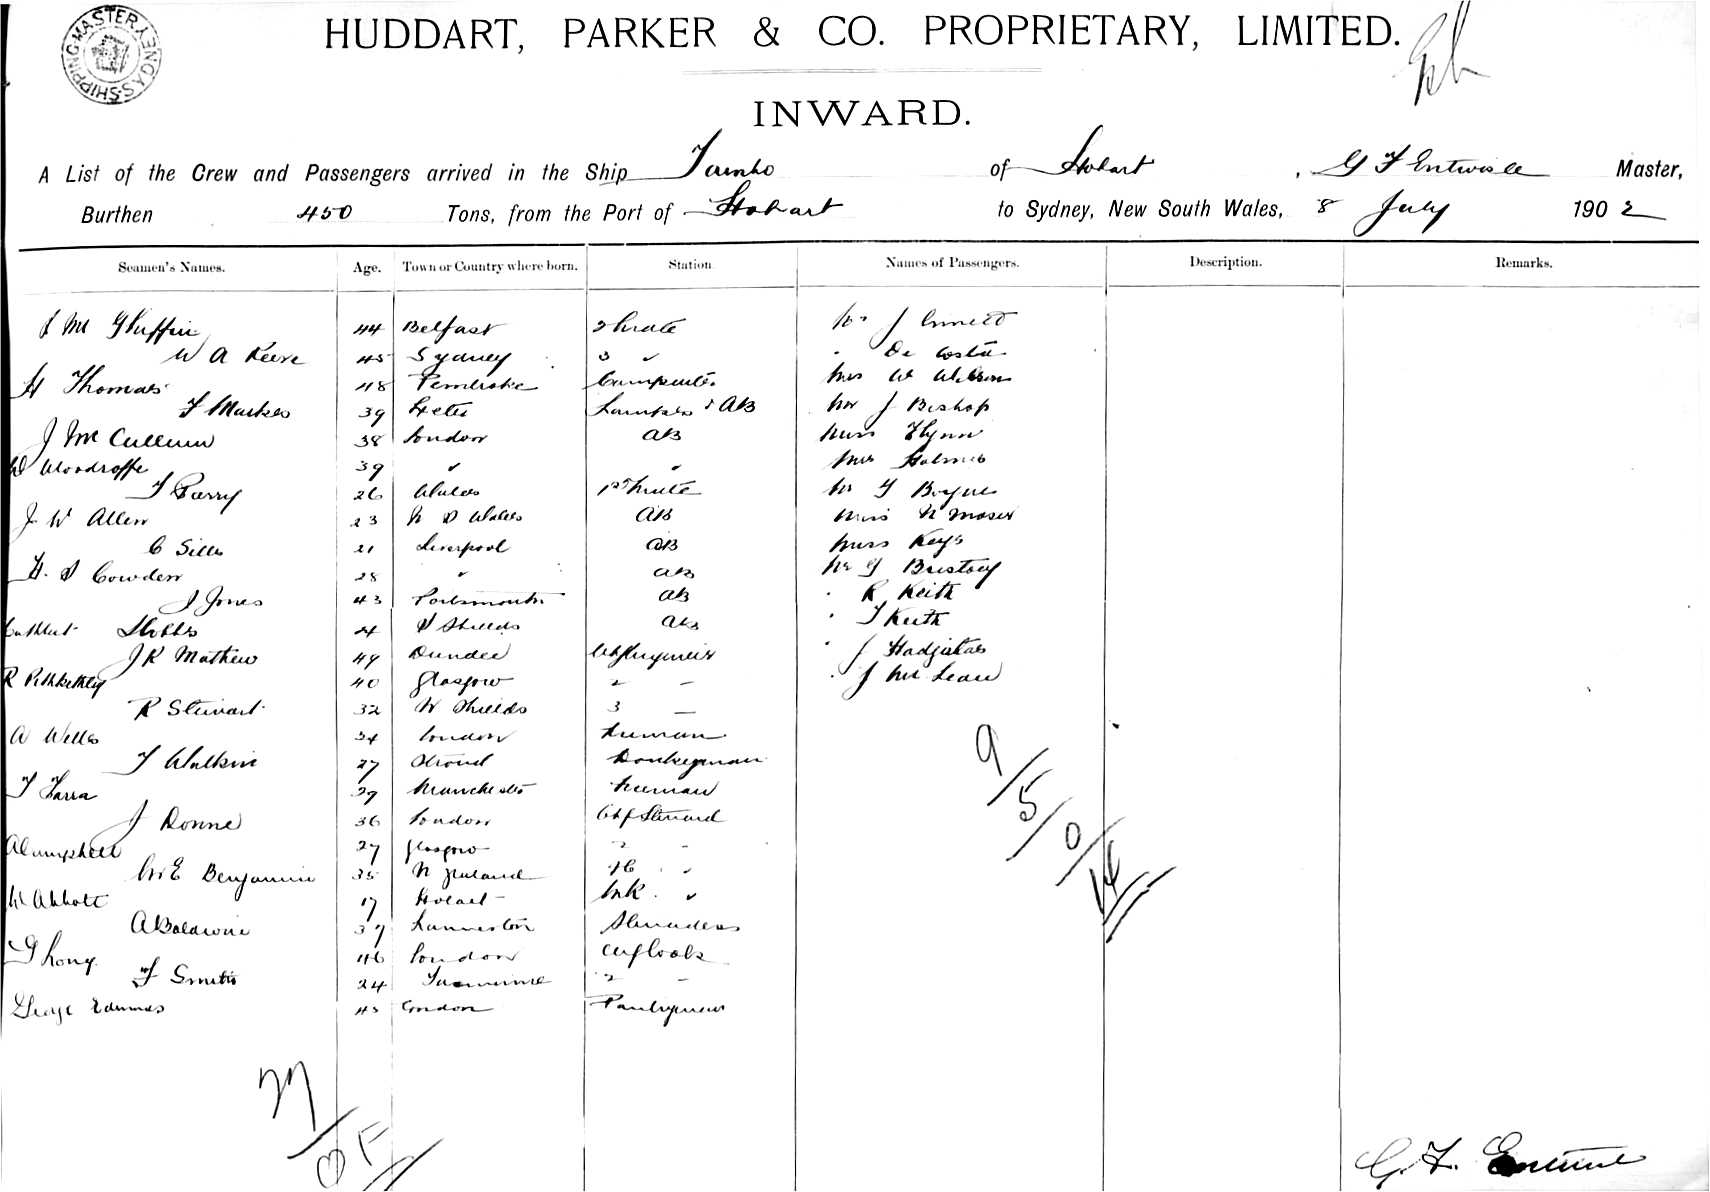 SHIPPING MASTER SYDNEY
HUDDART, PARKER & CO. PROPRIETARY, LIMITED.
INWARD.
A List of the Crew and Passengers arrived in the Ship Tambo of Hobart, G F Entwisle Master,
Burthen 450 Tons, from the Port of Hobart to Sydney, New South Wales, 8 July 1902
Seamen's Names. Age. Town or Country where born. Station Names of Passengers. Description. Remarks.
44 Belfast 2 Mate Mr J
W A Keeve 45 Sydney 3 " De Costa
H Thomas 48 Pembroke Carpenter Mrs W Wilson
F Markes 39 Exeter Lamps & AB Mr J Bishop
J McCullum 38 London AB Miss Flynn
W Woodroffe 39 " " Mrs Holmes
T Parry 26 Wales 1st Mate Mr G Boyne
J W Allen 23 N S Wales AB Miss N Moser
C Sills 21 Liverpool AB Miss Keys
H. S Cowden 28 " AB Mr G
J Jones 43 Portsmouth AB " R Keith
Cuthbert Hobbs 24 S Shields AB " T Keith
J R Mathew 49 Dundee Chf Engineer " J
R Pithkethly 40 Glasgow 2 — " J McLean
R Stewart 32 N Shields 3 —
A Wells 34 London Fireman
T Watkin 27 Stroud Donkeyman
T Farra 39 Manchester Fireman
J Donne 36 London Chf Steward
A Campbell 27 Glasgow 2 -
Wm E Benjamin 35 N Zealand "
W Abbott 17 Hobart "
A Baldwin 37 Launceston Stewardess
G Long 46 London Chf Cook
F Smith 24 Tasmania 2 -
George Edwards 45 London Pantryman
9/5/0/14
27
G. F. Entwisle